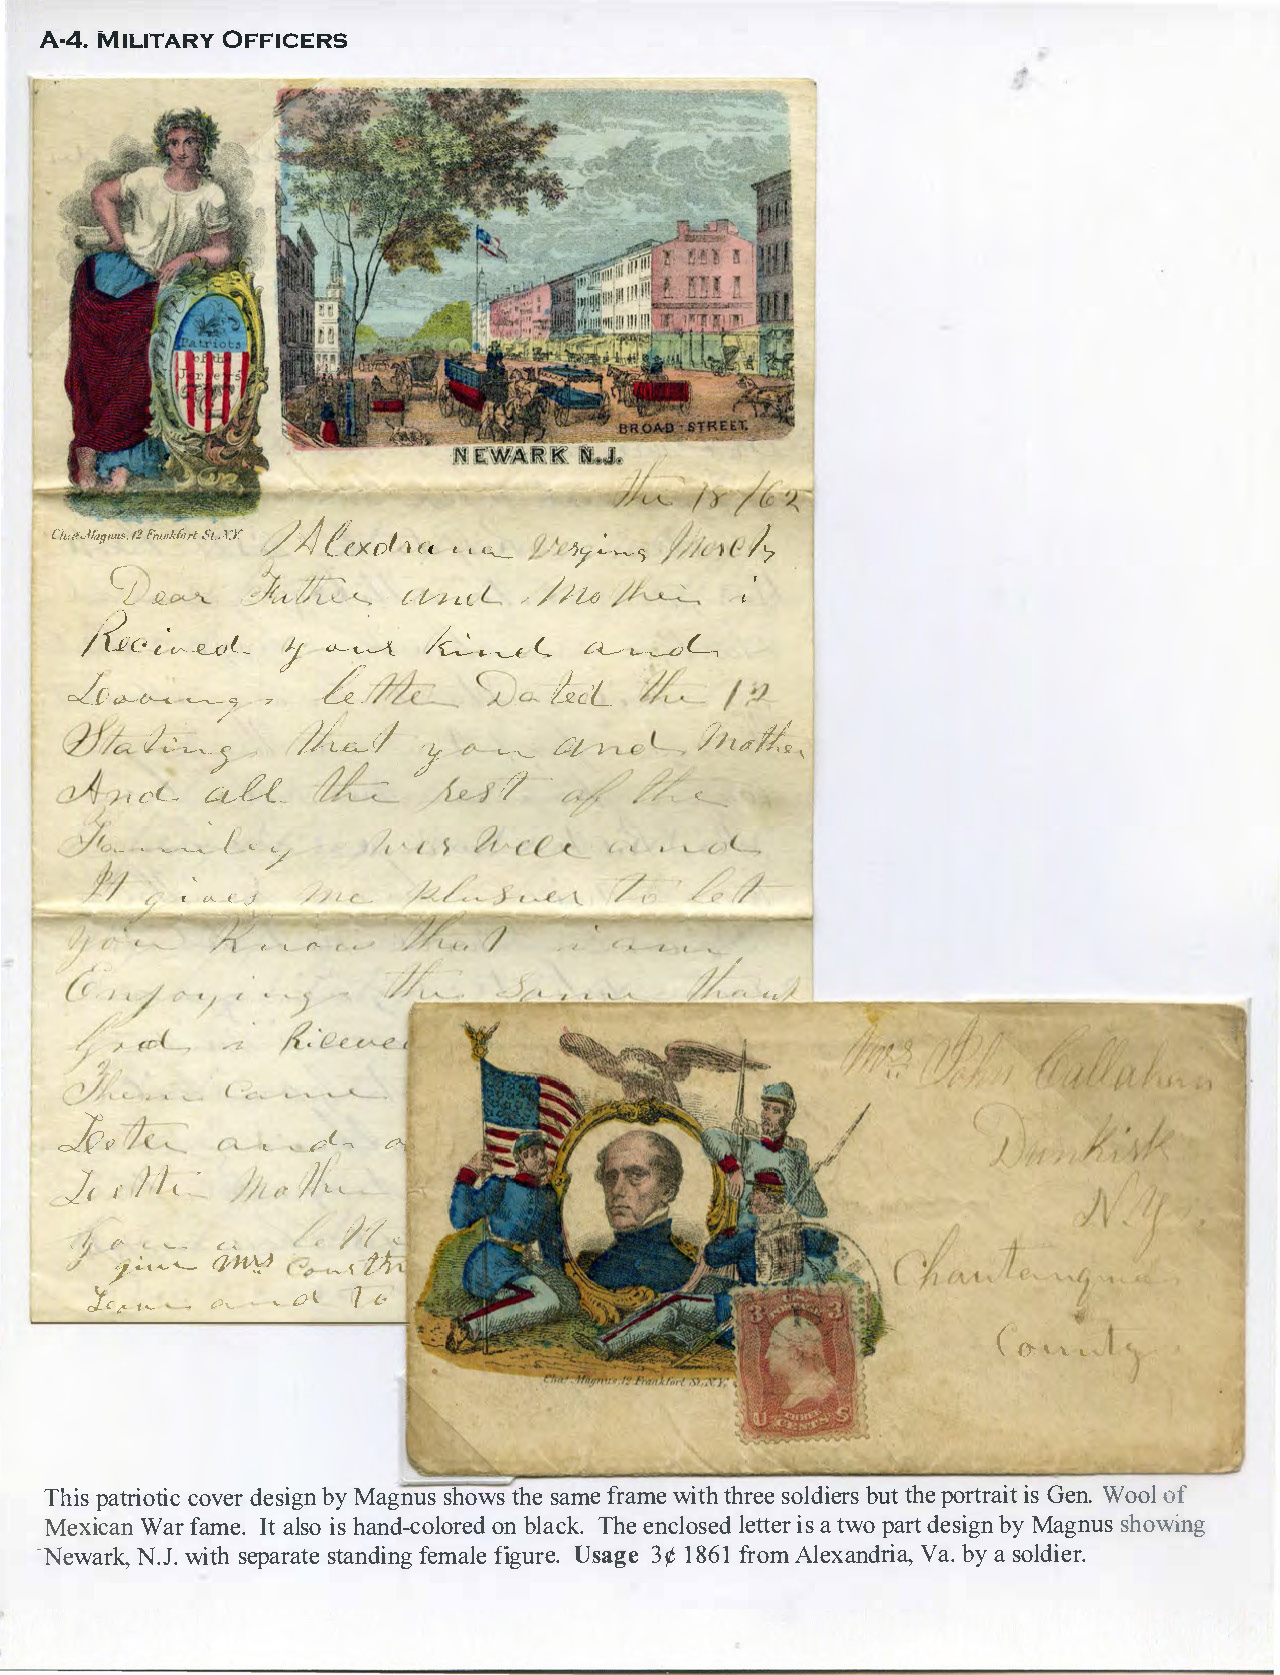 A-4. MILITARY OFFICERS
Patriots
of the
Jerseys
BROAD-STREET.
NEWARK N.J.
the 18 /62
Chas. Magnus, 12 Frankfort St. N.Y.
Alexdrana Vergina
Dear Father and Mother i
Recived your kind and
Loovings letter Dated the 12
Stating that you and Mother
And all the rest of the
Familey wer well and
It gives me plusuer to let
you Know that i am
Enjoying the same thank
God i
Them came
Letter and
Mother
you a lette
give Mrs
and to
Mrs John Callahan
Dunkirk
N.Y.
Chautauqua
County
Chas. Magnus, 12 Frankfort St. N.Y.
3 3
U THREE S
CENTS
This patriotic cover design by Magnus shows the same frame with three soldiers but the portrait is Gen. Wool of
Mexican War fame. It also is hand-colored on black. The enclosed letter is a two part design by Magnus showing
Newark, N.J. with separate standing female figure. Usage 3¢ 1861 from Alexandria, Va. by a soldier.